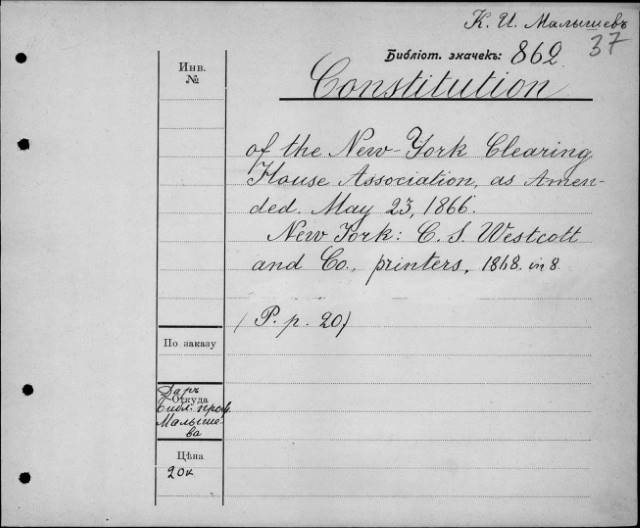 К. И. Малышевъ
37
Библіот. значекъ: 862
Инв.
№
Constitution
of the New-York Clearing
House Association, as Amen-
ded. May 23, 1866.
New York: C. S. Westcott
and Co., printers, 1868. in 8.
(P. p. 20)
По заказу
Даръ
Откуда
Библ. проф.
Малыше-
ва
Цѣна
20к